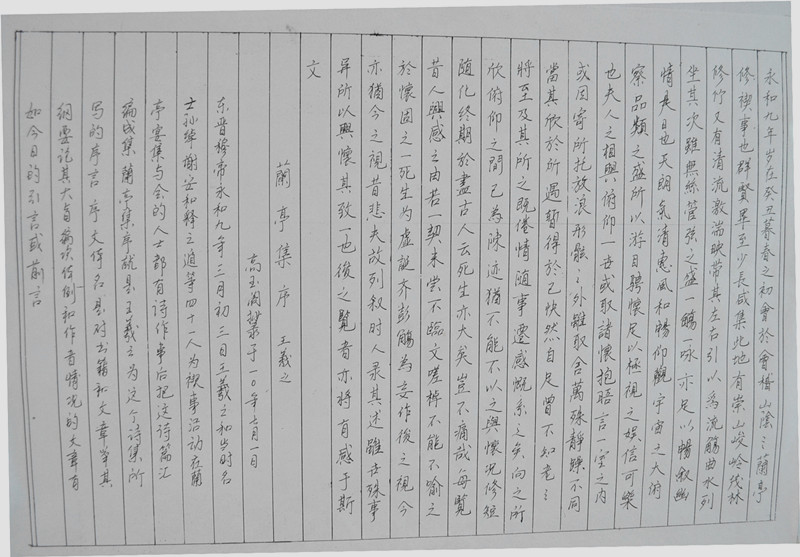 永和九年岁在癸丑暮春之初會於會稽山陰之蘭亭
修禊事也群賢畢至少長咸集此地有崇山峻岭茂林
修竹又有清流激湍映帶其左右引以為流觴曲水列
坐其次雖無絲管弦之盛一觴一咏亦足以暢叙幽
情是日也天朗氣清惠風和暢仰觀宇宙之大俯
察品類之盛所以游目騁懷足以極視之娱信可樂
也夫人之相與俯仰一世或取諸懷抱晤言一室之内
或因寄所托放浪形骸之外雖取舍萬殊静躁不同
當其欣於所遇暫得於己快然自足曾不知老之
將至及其所之既倦情随事遷感慨系之矣向之所
欣俯仰之間已為陳迹猶不能不以之興懷况修短
随化终期於盡古人云死生亦大矣豈不痛哉每覽
昔人興感之由若一契未嘗不臨文嗟悼不能不喻之
於懷固之一死生为虚誕齐彭觴為妄作後之視今
亦猶今之視昔悲夫故列叙时人录其述雖世殊事
异所以興懷其致一也後之覽者亦将有感于斯
文
蘭亭集序 王羲之
高玉 馨于一〇年 月一日
东晋穆帝永和九年三月初三日王羲之和当时名
士孙绰谢安和释之遁等四十一人为禊事活动在蘭
亭宴集与会的人士都有诗作事后把这诗篇汇
编成集蘭亭集序就是王羲之为这个诗集所
写的序言 序文俗名是对书籍和文章举其
纲要论其大旨 例和作者情况的文章有
如今日的引言或前言